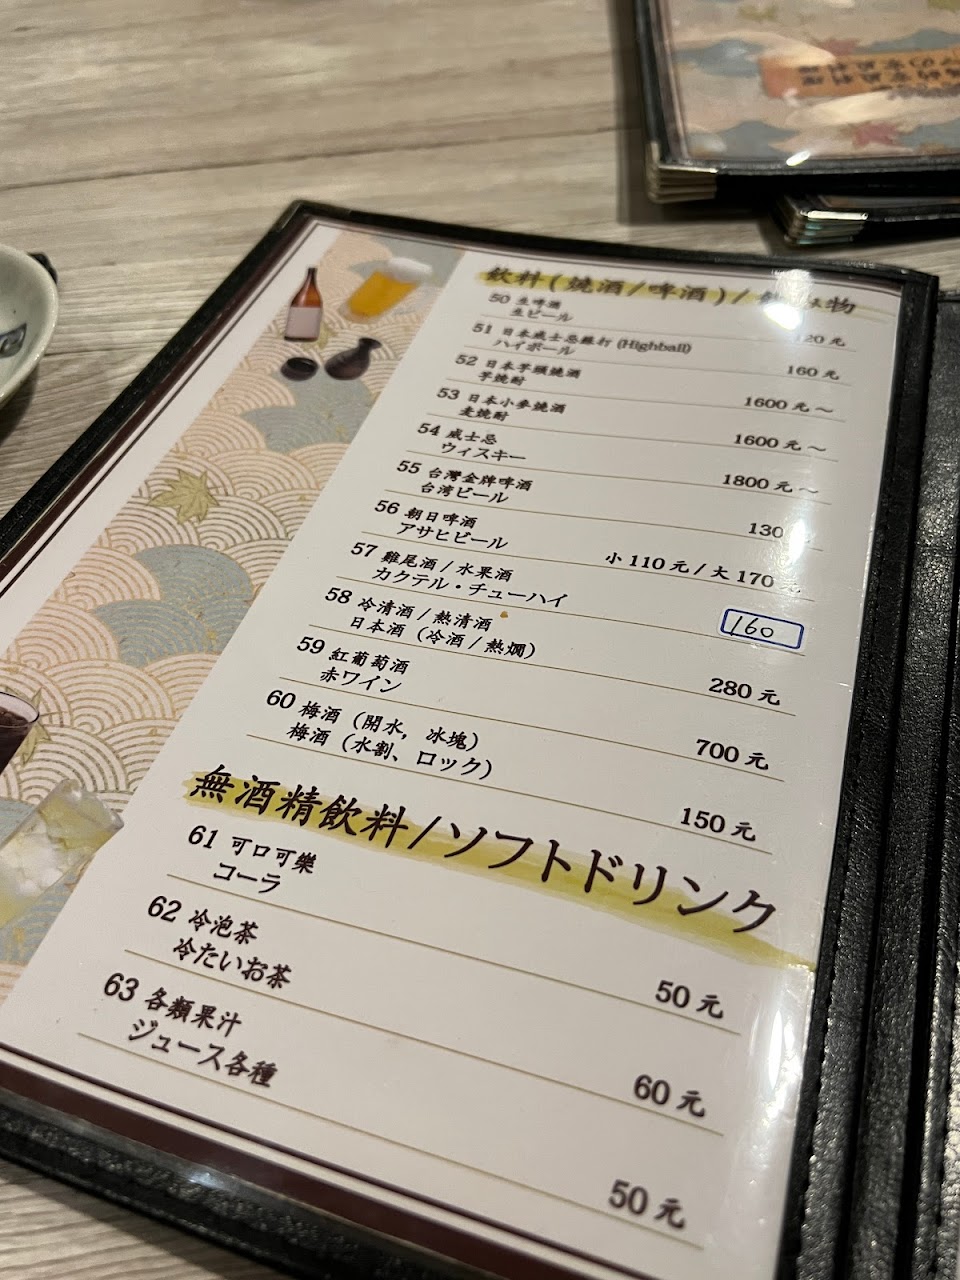 飲料(燒酒/啤酒)/飲み物
50 生啤酒
生ビール
120元
51 日本威士忌雞打 (Highball)
ハイボール
160元
52 日本芋頭燒酒
芋焼酎
1600元～
53 日本小麥燒酒
麦焼酎
1600元～
54 威士忌
ウィスキー
1800元～
55 台灣金牌啤酒
台湾ビール
130
56 朝日啤酒
アサヒビール
小110元/大170元
57 雞尾酒/水果酒
カクテル・チューハイ
160
58 冷清酒/熱清酒
日本酒（冷酒/熱燗）
280元
59 紅葡萄酒
赤ワイン
700元
60 梅酒（開水，冰塊）
梅酒（水割、ロック）
150元
無酒精飲料/ソフトドリンク
61 可口可樂
コーラ
50元
62 冷泡茶
冷たいお茶
60元
63 各類果汁
ジュース各種
50元